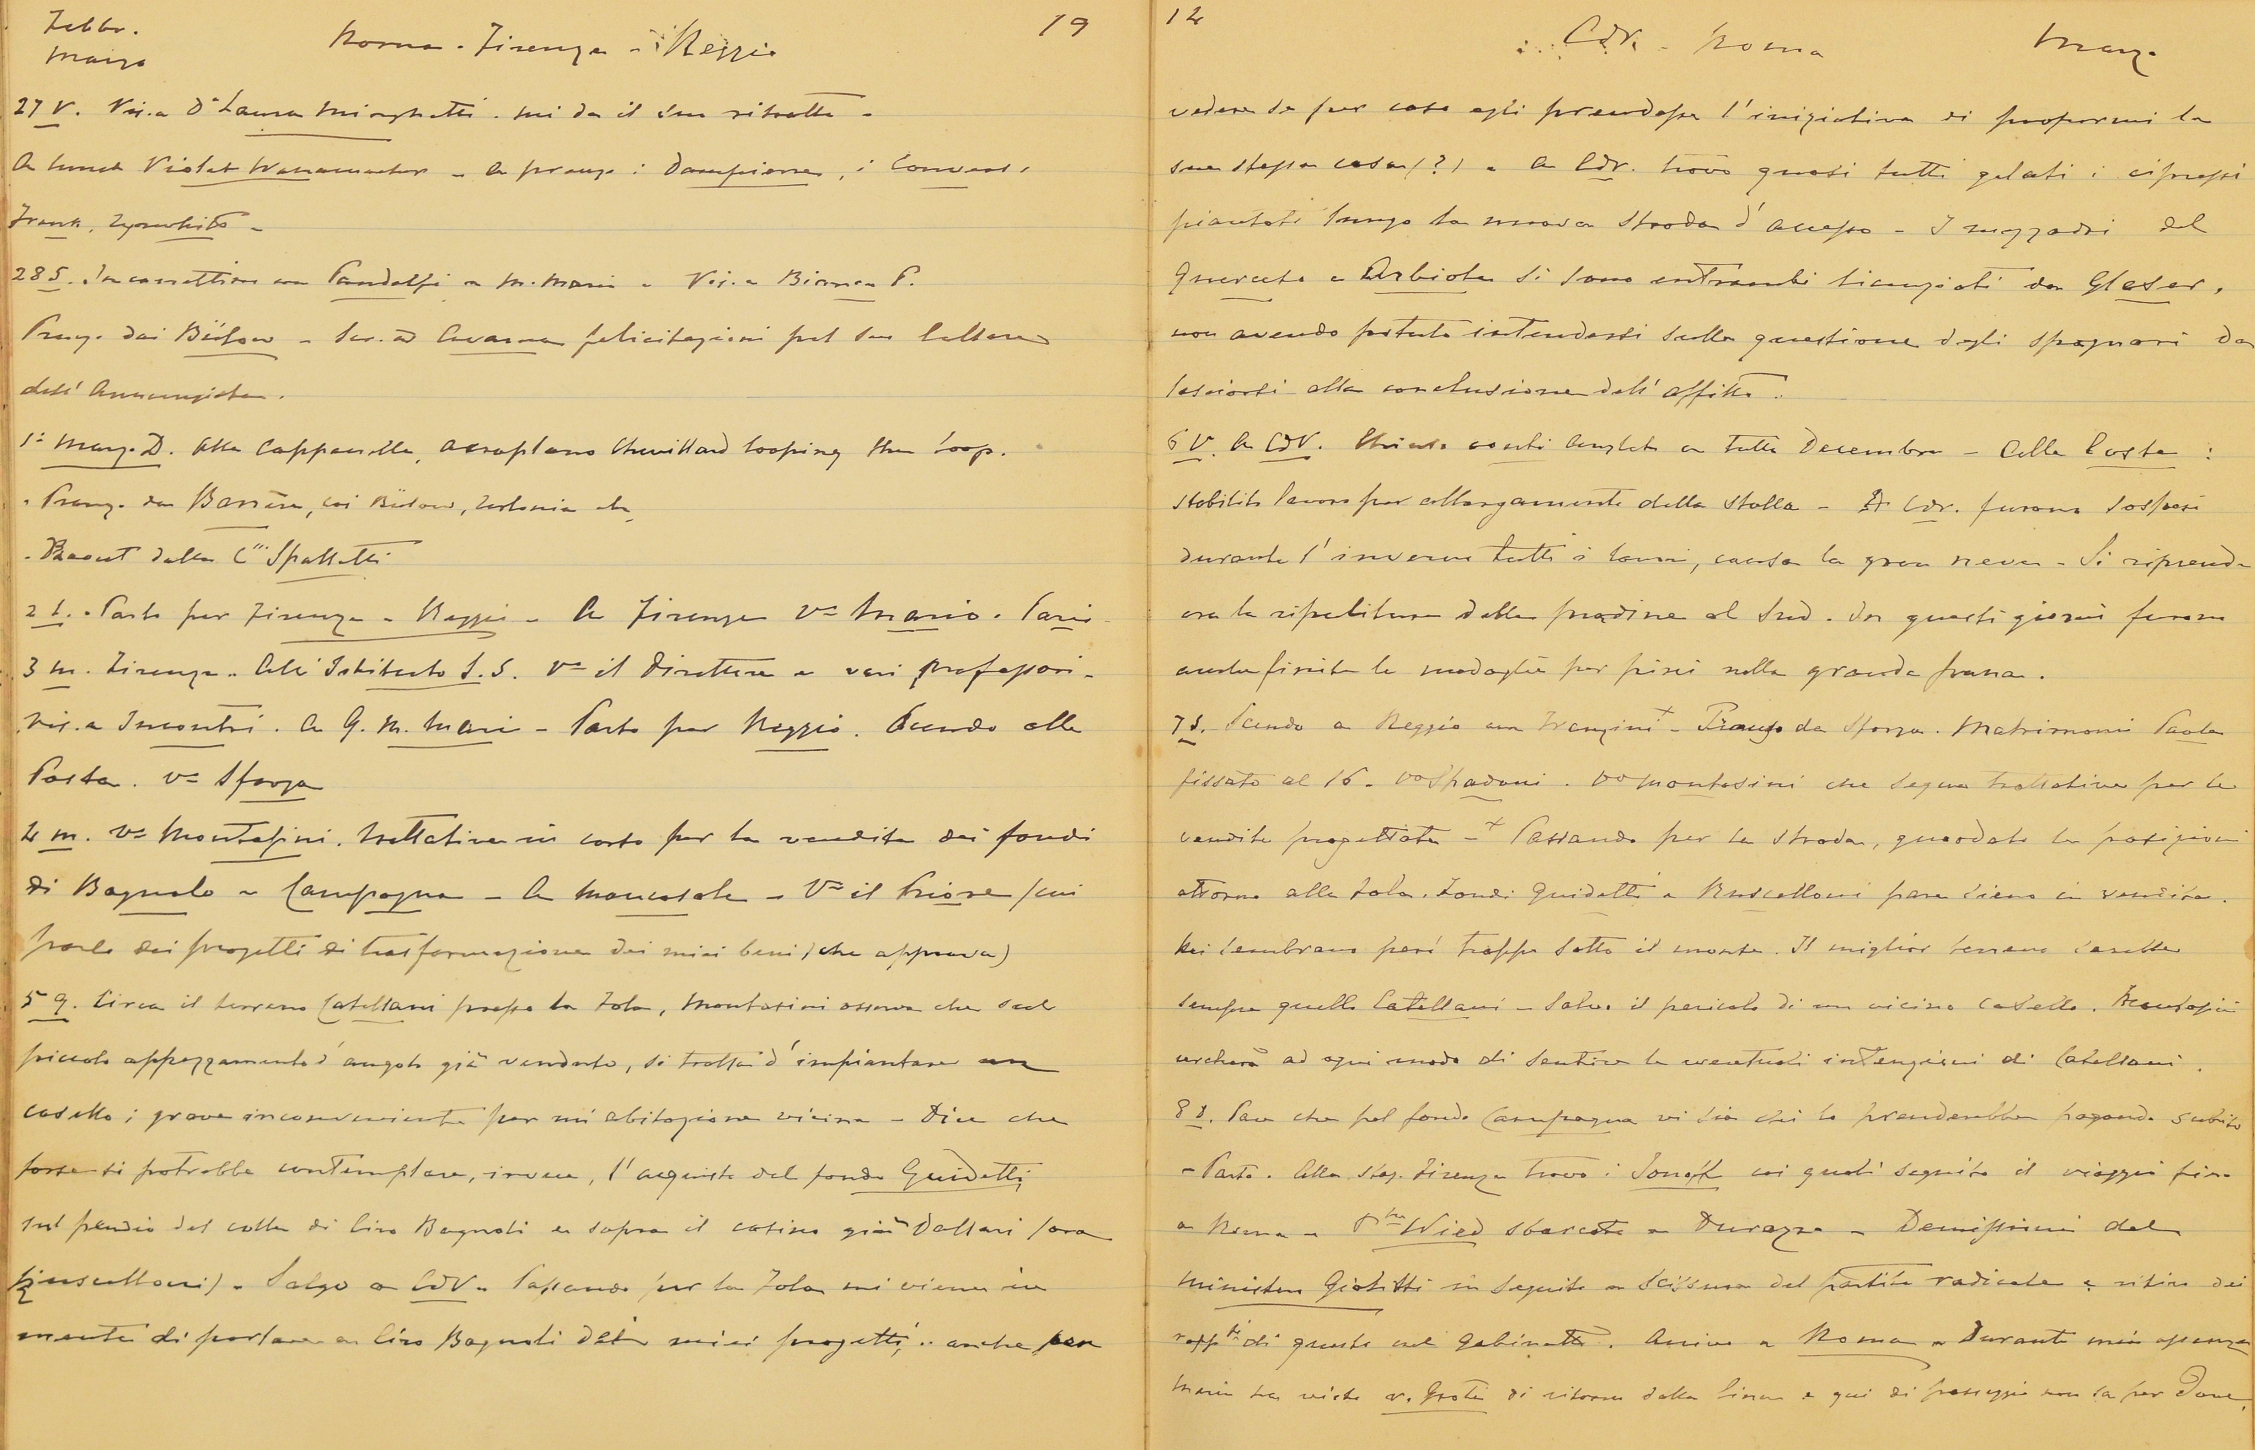 Febbr.
Marzo
Roma - Firenze - Reggio
19
27 V. Vis. a Da Laura Minghetti. mi da il suo ritratto -
A lunch Violet Wanamaker - A pranzo i Dampierre, i
Frank,
28 S. con Pandolfi a M. Mario - Vis. a Bianca P.
Pranzo dai Bülow - Scr. ad Avarna felicitazioni pel suo Collare
dell'Annunziata.
1° Marzo D. Alla Cappannelle, aeroplano Chevillard looping the loop.
- Pranzo da Barrère, coi Bülow, etc.
- Raout dalla C.ssa Spalletti
2 L. - Parto per Firenze - Reggio - A Firenze Vo Mario.
3 M. Firenze - All'Istituto S.S. Vo il Direttore e vari professori -
Vis. a Incontri. A G. M. Mari - Parto per Reggio. Scendo alla
Posta. Vo Sforza
4 M. Vo Montasini. trattative in corso per la vendita dei fondi
di Bagnolo e Campagna - A Mancasale - Vo il Priore (cui
parlo dei progetti di trasformazione dei miei beni (che approva)
5 G. Circa il terreno Catellani presso la Fola, Montasini osserva che sul
piccolo appezzamento d'angolo già venduto, si tratta d'impiantare un
casello; grave inconveniente per mi abitazione vicina - Dice che
forse si potrebbe contemplare, invece, l'acquisto del fondo Guidetti,
sul pendio del colle di Ciro Bagnoli e sopra il casino già Dallari (ora
Ruscelloni) - Salgo a CdV - Passando per la Fola mi viene in
mente di parlare a Ciro Bagnoli dei miei progetti, - anche per
14
CdV. - Roma
Marzo
vedere se per caso egli prendesse l'iniziativa di propormi la
sua stessa casa (?) - A CdV. trovo quasi tutti gelati i cipressi
piantati lungo la nuova strada d'accesso - I mezzadri del
Querceto e Arbiola si sono entrambi licenziati da Glaser,
non avendo potuto intendersi sulla questione degli spagnari da
lasciarsi alla conclusione dell'affitto.
6 V. A CdV. conti a tutto Decembre - Alla Costa:
stabilito lavoro per allargamento della stalla - A CdV. furono sospesi
durante l'inverno tutti i lavori, causa la gran neve - Si riprende
ora la ripulitura delle pradine al Sud. In questi giorni furono
anche finite le per nella grande frana.
7 S. Scendo a Reggio con Franzini + - Pranzo da Sforza. Matrimonio Paola
fissato al 16 - Vo Spadoni. Vo Montasini che segue trattative per le
vendite progettate - + Passando per la strada, guardato la posizioni
attorno alla Fola. Fondi Guidetti e Ruscelloni pare sieno in vendita.
Mi sembrano però troppo sotto il monte. Il miglior terreno sarebbe
sempre quello Catellani - Salvo il pericolo di un vicino casello. Montasini
cercherà ad ogni modo di sentire le eventuali intenzioni di Catellani.
8 D. Pare che pel fondo Campagna vi sia chi lo prenderebbe pagando subito
- Parto. Alla staz. Firenze trovo i coi quali seguito il viaggio fino
a Roma - Wied sbarcato a Durazzo - Demissioni del
ministero Giolitti in seguito a scissura del partito radicale e ritiro dei
rapp.ti di questo nel gabinetto. Arrivo a Roma - Durante mia assenza
Maria ha visto v. Grote di ritorno dalla e qui di passaggio non sa per dove,